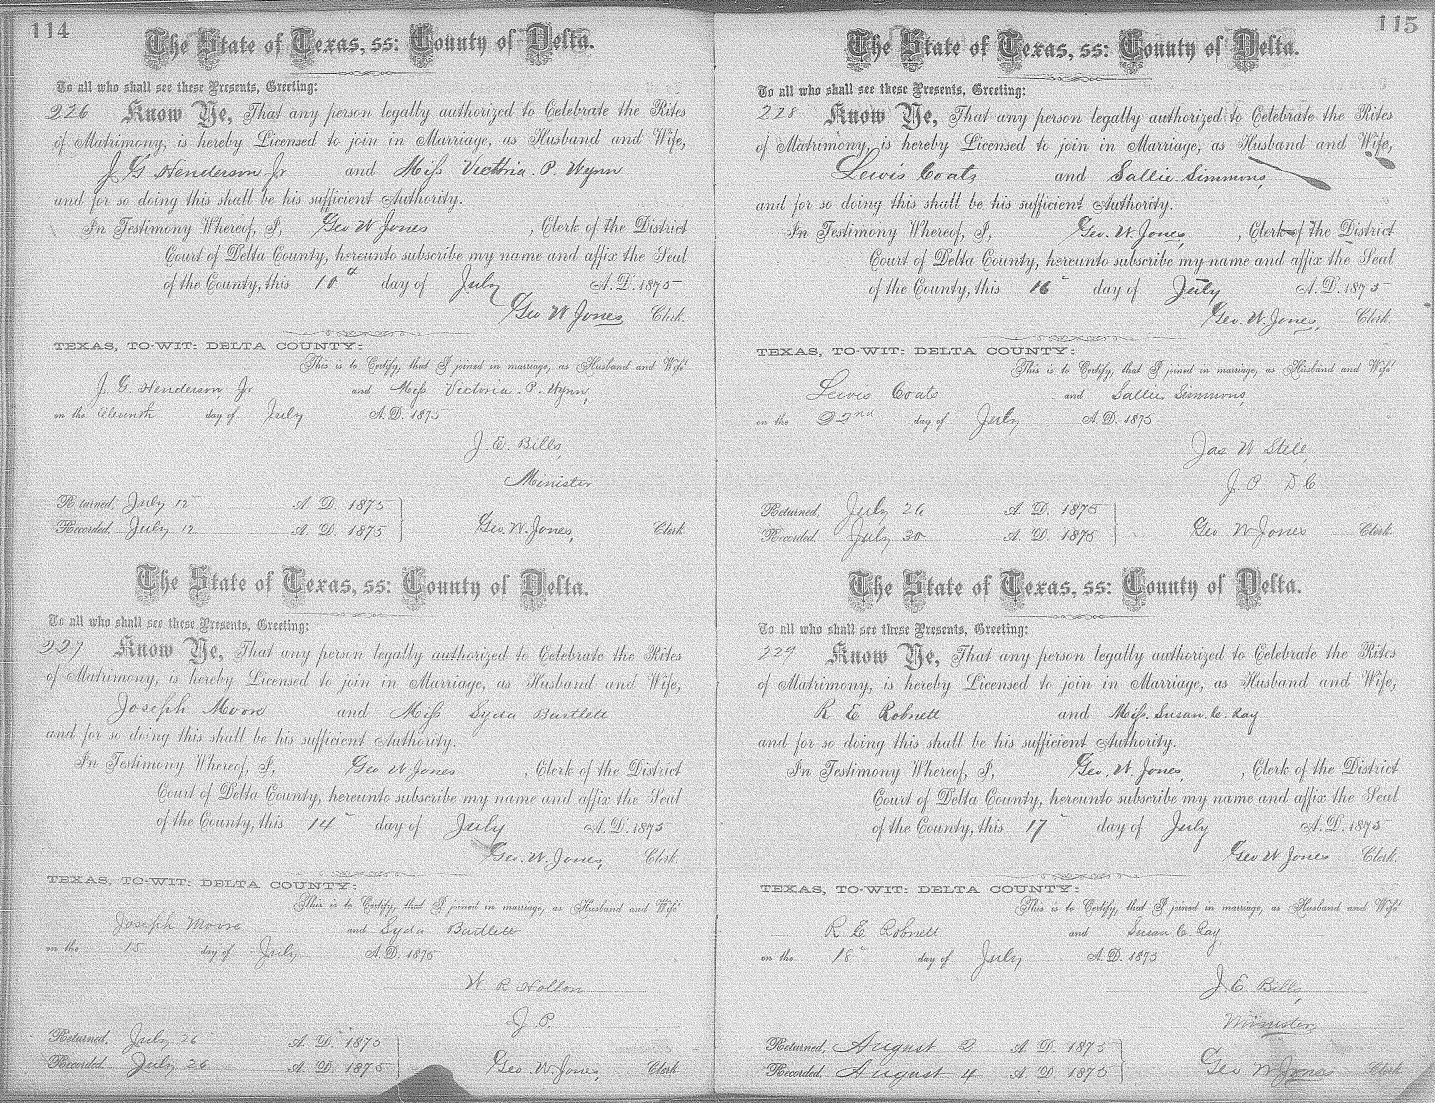 114
The State of Texas, ss: County of Delta.
To all who shall see these Presents, Greeting:
226 Know Ye, That any person legally authorized to Celebrate the Rites
of Matrimony, is hereby Licensed to join in Marriage, as Husband and Wife,
J. G. Henderson Jr and Miss Victoria. P. Wynn
and for so doing this shall be his sufficient Authority.
In Testimony Whereof, I, Geo W Jones , Clerk of the District
Court of Delta County, hereunto subscribe my name and affix the Seal
of the County, this 10th day of July A. D. 1875
Geo W Jones Clerk.
TEXAS, TO-WIT: DELTA COUNTY:
This is to Certify, that I joined in marriage, as Husband and Wife
J. G. Henderson, Jr and Miss Victoria. P. Wynn,
on the Eleventh day of July A. D. 1875
J. E. Bills,
Minister
Returned, July 12 A. D. 1875
Recorded, July 12 A. D. 1875 Geo. W. Jones, Clerk
The State of Texas, ss: County of Delta.
To all who shall see these Presents, Greeting:
227 Know Ye, That any person legally authorized to Celebrate the Rites
of Matrimony, is hereby Licensed to join in Marriage, as Husband and Wife,
Joseph Moore and Miss Syda Bartlett
and for so doing this shall be his sufficient Authority.
In Testimony Whereof, I, Geo W Jones , Clerk of the District
Court of Delta County, hereunto subscribe my name and affix the Seal
of the County, this 14 day of July A. D. 1875
Geo. W. Jones, Clerk.
TEXAS, TO-WIT: DELTA COUNTY:
This is to Certify, that I joined in marriage, as Husband and Wife
Joseph Moore and Syda Bartlett
on the 15 day of July A. D. 1875
W R Hollon
J. P.
Returned, July 26 A. D. 1875
Recorded, July 26 A. D. 1875 Geo. W. Jones, Clerk
115
The State of Texas, ss: County of Delta.
To all who shall see these Presents, Greeting:
228 Know Ye, That any person legally authorized to Celebrate the Rites
of Matrimony, is hereby Licensed to join in Marriage, as Husband and Wife,
Lewis Coats and Sallie Simmons,
and for so doing this shall be his sufficient Authority.
In Testimony Whereof, I, Geo. W Jones, , Clerk of the District
Court of Delta County, hereunto subscribe my name and affix the Seal
of the County, this 16 day of July A. D. 1875
Geo. W. Jones, Clerk.
TEXAS, TO-WIT: DELTA COUNTY:
This is to Certify, that I joined in marriage, as Husband and Wife
Lewis Coats and Sallie Simmons,
on the 22nd day of July A. D. 1875
Jas W Stell,
J. P D C
Returned, July 26 A. D. 1875
Recorded, July 30 A. D. 1875 Geo W Jones Clerk.
The State of Texas, ss: County of Delta.
To all who shall see these Presents, Greeting:
229 Know Ye, That any person legally authorized to Celebrate the Rites
of Matrimony, is hereby Licensed to join in Marriage, as Husband and Wife,
R E Robnett and Miss. Susan. C. Ray
and for so doing this shall be his sufficient Authority.
In Testimony Whereof, I, Geo. W. Jones, , Clerk of the District
Court of Delta County, hereunto subscribe my name and affix the Seal
of the County, this 17 day of July A. D. 1875
Geo W Jones Clerk.
TEXAS, TO-WIT: DELTA COUNTY:
This is to Certify, that I joined in marriage, as Husband and Wife
R E Robnett and Susan C Ray,
on the 18 day of July A. D. 1875
J. E. Bills,
Minister,
Returned, August 2 A. D. 1875
Recorded, August 4 A. D. 1875 Geo W Jones Clerk